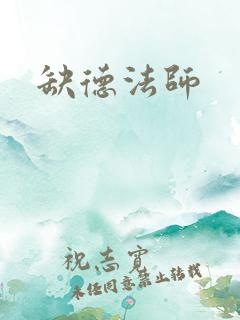 缺德法师
祝志宾
未经同意禁止转载